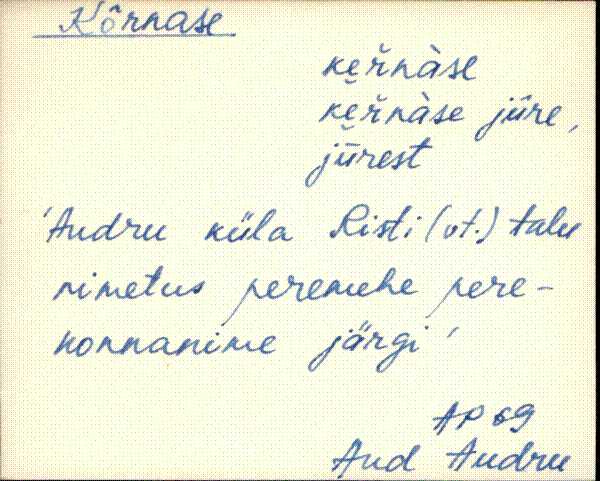 Kõrnase
ke̬ŕnàse
ke̬ŕnàse jüre,
jürest
'Audru küla Risti (vt.) talu
nimetus peremehe pere-
konnanime järgi'
AP 69
Aud Audru